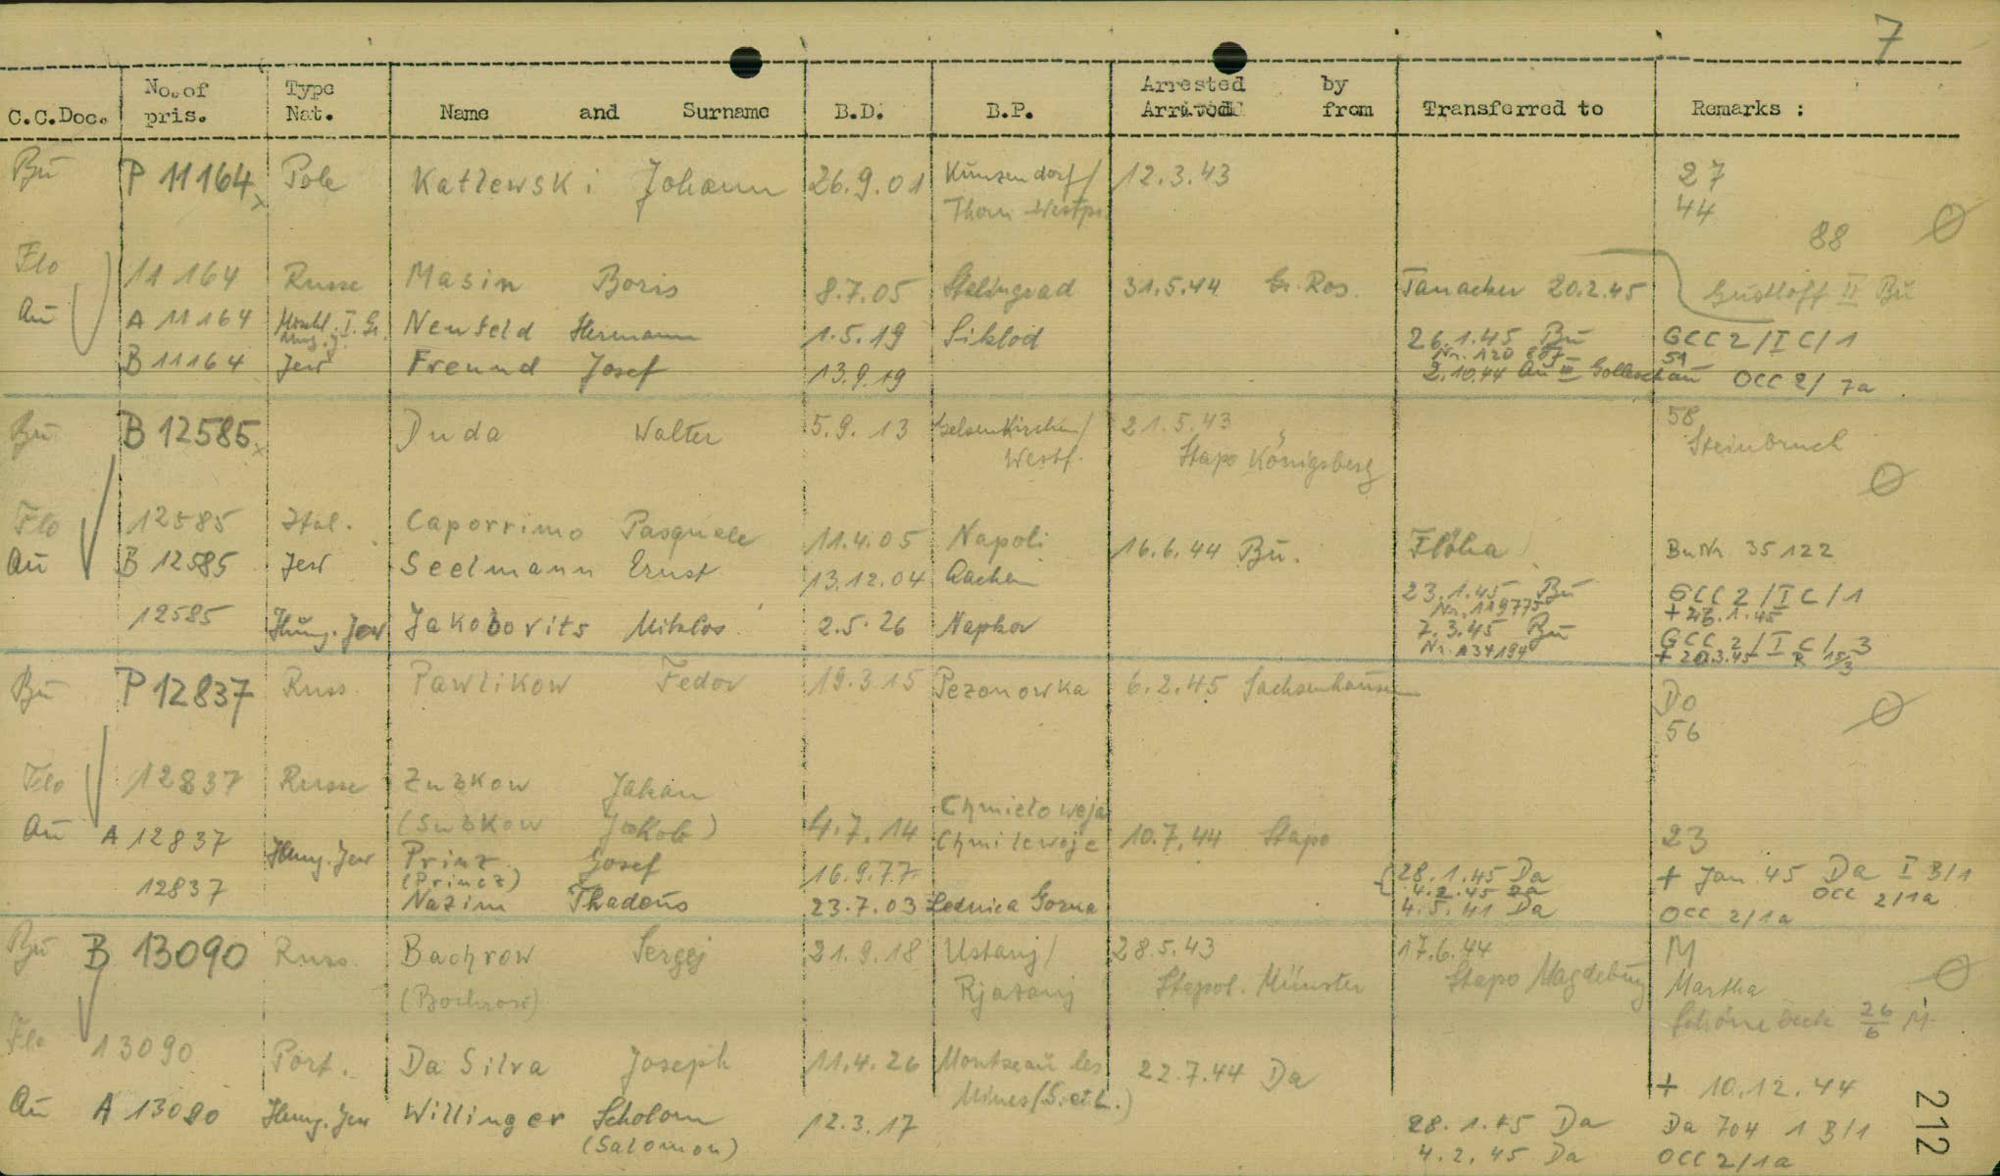 7
C.C.Doc. No. of pris. Type Nat. Name and Surname B.D. B.P. Arrested by Transferred to Remarks :
Arrived from
Bu P 11164 Pole Katlewski Johann 26.9.01 Kunzendorf/ 12.3.43 27
Thorn Westpr. 44
88
Flo 11164 Russe Masin Boris 8.7.05 Stalingrad 31.5.44 Gr. Ros. Tanacker 20.2.45 Gustloff II Bu
Au A 11164 Neufeld Hermann 1.5.19 Siklod 26.1.45 Bu GCC 2/I C/1
Nr. 120
B 11164 Jew Freund Josef 13.9.19 2.10.44 Au III Golleschau OCC 2/7a
Bu B 12585 Duda Walter 5.9.13 Gelsenkirchen/ 21.5.43 58
Westf. Stapo Königsberg Steinbruch
Flo 12585 Ital. Caporrimo Pasquale 11.4.05 Napoli 16.6.44 Bu. Flöha BuNr 35122
Au B 12585 Jew Seelmann Ernst 13.12.04 Aachen 23.1.45 Bu GCC 2/I C/1
Nr. 119775
12585 Hung. Jew Jakobovits Miklos 2.5.26 Napkor 7.3.45 Bu GCC 2/I C/3
Nr. 134194
Bu P 12837 Russ. Pawlikow Fedor 19.3.15 Pezonowka 6.2.45 Sachsenhausen Do
56
Flo 12837 Russe Zubkow Jakan
(Subkow Jakob) 4.7.14 Chmielowoja
Chmilewoje 10.7.44 Stapo 23
Au A 12837 Hung. Jew Prinz Josef 16.9.77 28.1.45 Da + Jan 45 Da I 3/1
(Princz) 4.2.45 Da OCC 2/1a
12837 Nazim Thadeus 23.7.03 Lednica Gorna 4.5.41 Da OCC 2/1a
Bu B 13090 Russ. Bachrow Sergej 21.9.18 Ustanj/ 28.5.43 17.6.44 M
(Bochrow) Rjazanj Stapol. Münster Stapo Magdeburg Martha
Schönebeck 26/6 M
Flo 13090 Port. Da Silva Joseph 11.4.26 Montzeau les 22.7.44 Da + 10.12.44
Mines (S. et L.)
Au A 13090 Hung. Jew Willinger Scholom 12.3.17 28.1.45 Da Da 704 1 3/1
(Salomon) 4.2.45 Da OCC 2/1a
212